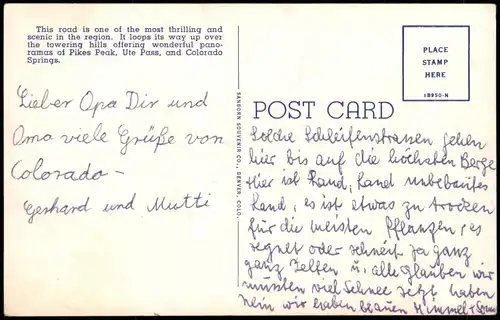 This road is one of the most thrilling and
scenic in the region. It loops its way up over
the towering hills offering wonderful pano-
ramas of Pikes Peak, Ute Pass, and Colorado
Springs.
Lieber Opa Dir und
Oma viele Grüße von
Colorado –
Gerhard und Mutti
SANBORN SOUVENIR CO., DENVER, COLO.
PLACE
STAMP
HERE
18950-N
POST CARD
Solche Schleifenstrassen gehen
hier bis auf die höchsten Berge
Hier ist Land, Land unbebautes
Land, es ist etwas zu trocken
für die meisten Pflanzen, es
regnet oder schneit ja ganz
ganz selten u. alle glauben wir
müssten viel Schnee jetzt haben
Nein wir haben blauen Himmel +